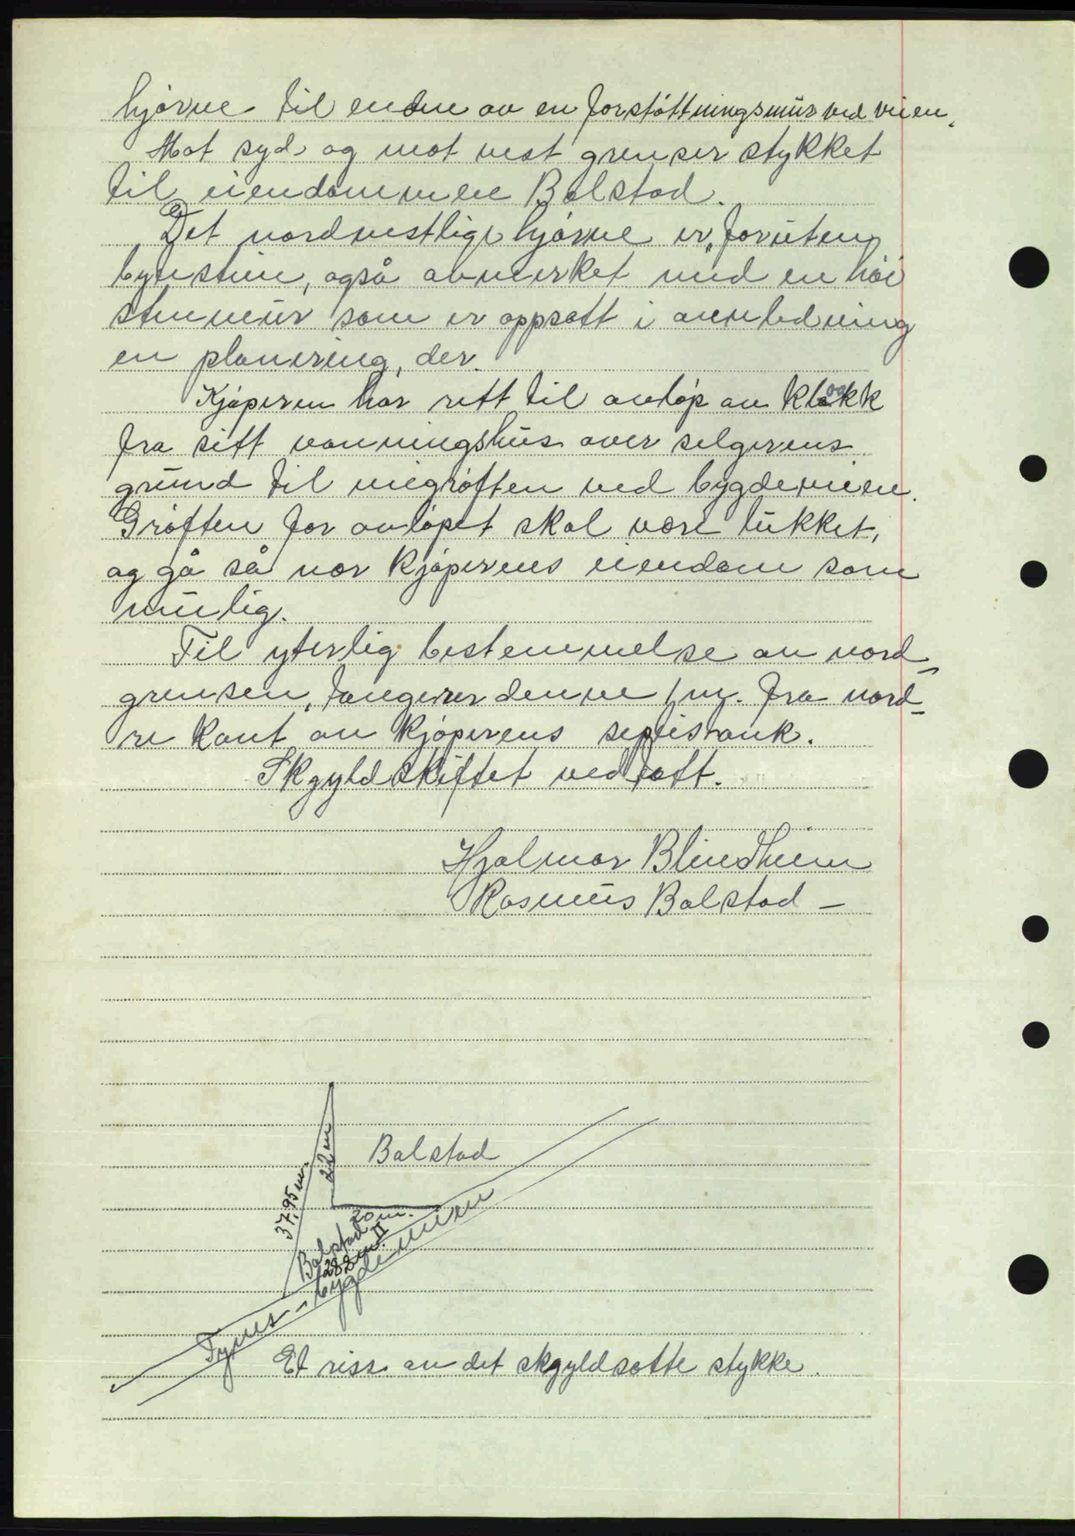 hjørne til enden av en forstøttningsmur ved veien.
Mot syd og mot vest grenser stykket
til eiendommen Balstad.
Det nordvestlige hjørne er, foruten
bytestein, også avmerket med en høi
stenmur som er oppsatt i anledning
en planering, der.
Kjøperen har rett til avløp av kloakk
fra sitt vanningshus over selgerens
grund til veigrøften ved bygdeveien.
Grøften for avløpet skal være lukket,
og gå så nær kjøperens eiendom som
mulig.
Til yterlig bestemmelse av nord-
grensen, tangerer denne 1 m. fra nord-
re kant av kjøperens septistank.
Skgyldskiftet vedtatt.
Hjalmar Blindheim
Rasmus Balstad -
Balstad
22 m
37,95 m.
20 m.
Balstad II
28,8 m.
Tynes - bygdeveien
Et riss av det skgyldsatte stykke.